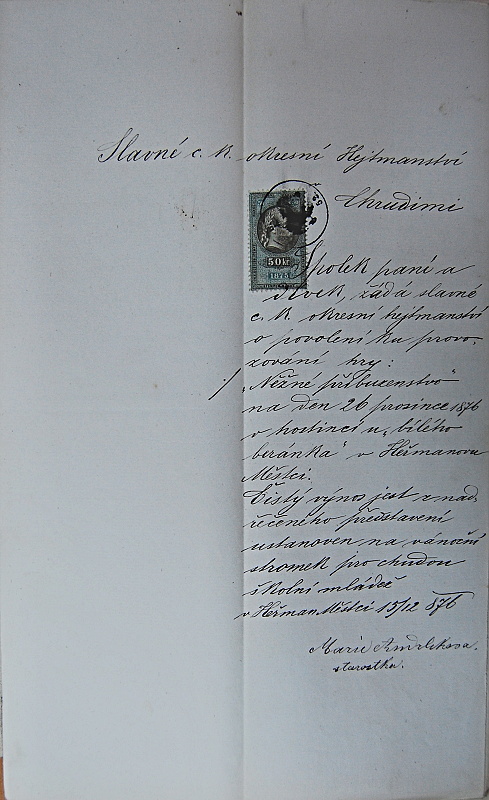 Slavné c. k. okresní Hejtmanství
Chrudimi
50 kr
1875
Spolek paní a
dívek, žádá slavné
c. k. okresní hejtmanství
o povolení ku provo-
zování hry:
"Něžné příbuzenstvo"
na den 26 prosince 1876
v hostinci u "bílého
beránka" v Heřmanovu
Městci.
Čistý výnos jest z nad
řečeného představení
ustanoven na vánoční
stromek pro chudou
školní mládež
v Heřman Městci 15/12 876
Marie
starostka.